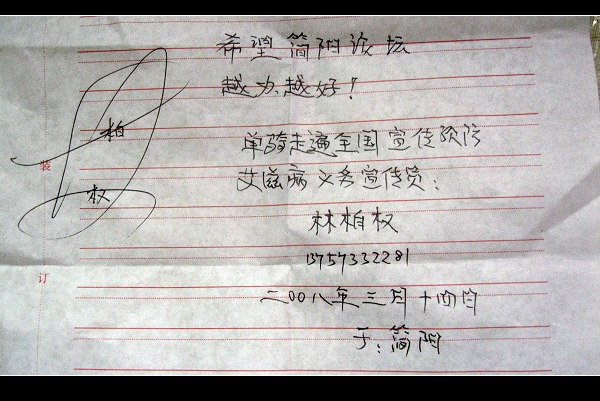 希望简阳论坛
越办越好！
单骑走遍全国宣传预防
艾滋病义务宣传员：
林柏权
13757332281
二00八年三月十四日
于：简阳
柏
权
装
订